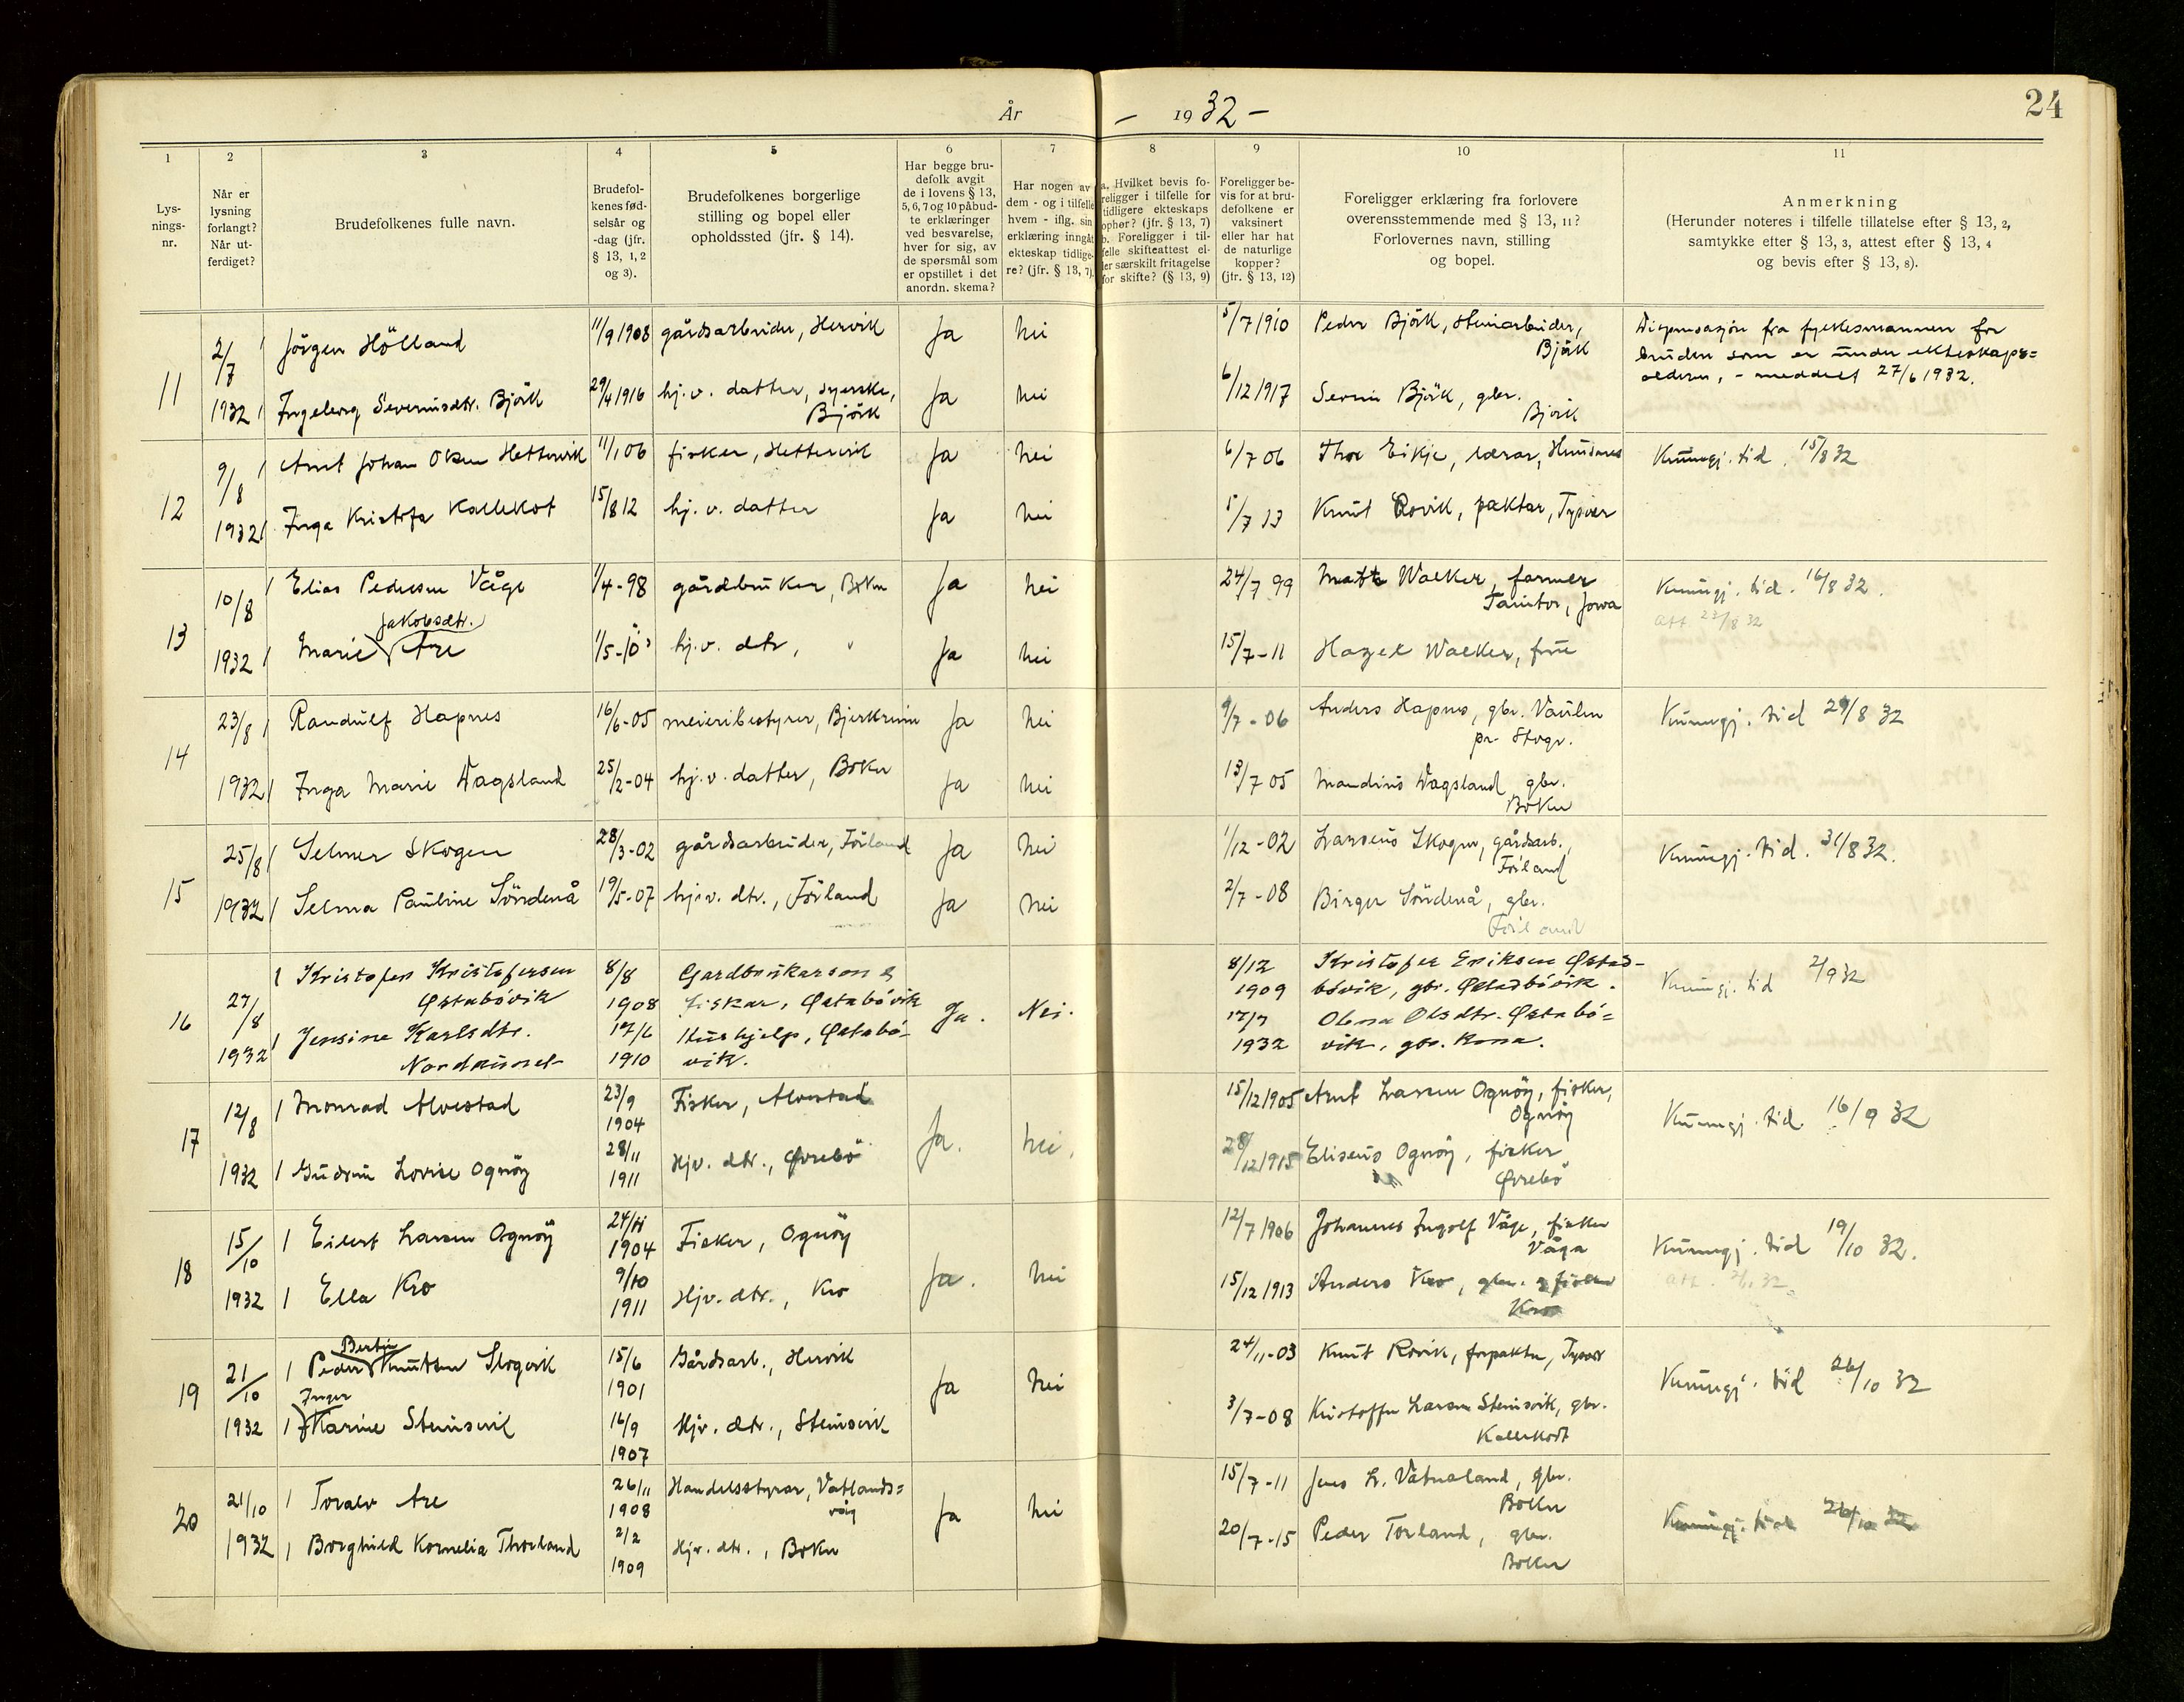 År — 1932 —
24
1
2
3
4
5
6
7
8
9
10
11
Lys-
nings-
nr.
Når er
lysning
forlangt?
Når ut-
ferdiget?
Brudefolkenes fulle navn.
Brudefol-
kenes fød-
selsår og
-dag (jfr.
§ 13, 1, 2
og 3).
Brudefolkenes borgerlige
stilling og bopel eller
opholdssted (jfr. § 14).
Har begge bru-
defolk avgit
de i lovens § 13,
5, 6, 7 og 10 påbud-
te erklæringer
ved besvarelse,
hver for sig, av
de spørsmål som
er opstillet i det
anordn. skema?
Har nogen av
dem - og i tilfelle
hvem - iflg. sin
erklæring inngåt
ekteskap tidlige-
re? (jfr. § 13, 7).
a. Hvilket bevis fo-
religger i tilfelle for
tidligere ekteskaps
ophør? (jfr. § 13, 7)
b. Foreligger i til-
felle skifteattest el-
ler særskilt fritagelse
for skifte? (§ 13, 9)
Foreligger be-
vis for at bru-
defolkene er
vaksinert
eller har hat
de naturlige
kopper?
(jfr. § 13, 12)
Foreligger erklæring fra forlovere
overensstemmende med § 13, 11?
Forlovernes navn, stilling
og bopel.
Anmerkning
(Herunder noteres i tilfelle tillatelse efter § 13, 2,
samtykke efter § 13, 3, attest efter § 13, 4
og bevis efter § 13, 8).
11
2/7
1932
Jörgen Hölland
11/9 1908
gårdsarbeider, Hervik
Ja
Nei
5/7 1910
Peder Björk, steinarbeider,
Björk
Dispensasjon fra fylkesmannen for
bruden som er under ekteskaps=
alderen, - meddelt 27/6 1932.
Ingeborg Severinsdtr. Björk
29/4 1916
hj.v. datter, syerske,
Björk
Ja
Nei
6/12 1917
Severin Björk, gbr.
Björk
12
9/8
1932
Arnt Johan Olsen Hettervik
11/1 06
fisker, Hettervik
Ja
Nei
6/7 06
Thor Eikje, lærar,
Kunngj. tid. 15/8 32
Inga Kristofa Kallekot
15/8 12
hj. v. datter
Ja
Nei
5/7 13
Knut Rovik, paktar, Tysvær
13
10/8
1932
Elias Pedersen Våge
1/4-98
gårdbruker, Bokn
Ja
Nei
24/7 99
Matt Walker, farmer
Taintor, Jowa
Kunngj. tid. 16/8 32.
Att 23/8 32
Jakobsdtr.
Marie Are
1/5-10
hj.v. dtr, "
Ja
Nei
15/7-11
Hazel Walker, frue
14
23/8
1932
Randulf Hapnes
16/6-05
meieribestyrer, Bjerkreim
Ja
Nei
9/7-06
Anders Hapnes, gbr. Vaulen
pr. Stvgr.
Kunngj. tid 29/8 32
Inga Marie Vagsland
25/2-04
hj.v. datter, Bokn
Ja
Nei
13/7 05
Mandius Vagsland gbr.
Bokn
15
25/8
1932
Selmer Skogen
28/3-02
gårdsarbeider, Förland
Ja
Nei
1/12-02
Larseus Skogen, gårdsarb.,
Förland
Kunngj. tid. 31/8 32.
Selma Pauline Söndenå
19/5-07
hj.v. dtr., Förland
Ja
Nei
2/7-08
Birger Söndenå, gbr.
Förland
16
27/8
1932
Kristofer Kristofersen
Østabövik
8/8
1908
Gardbrukarson &
fiskar, Østabövik
Ja.
Nei.
8/12
1909
Kristofer Eriksen Østab-
bövik, gbr. Østabbövik.
Kunngj. tid 2/9 32
Jensine Karlsdtr.
17/6
1910
Hushjelp, Østabö-
vik.
17/7
1932
Olena Olsdtr. Østabö=
vik, gbr. Kona.
17
12/8
1932
Monrad Alvestad
23/9
1904
Fisker, Alvestad
Ja.
Nei.
15/12 1905
Arnt Larsen Ognöy, fisker,
Ognöy
Kunngj. tid 16/9 32
Gudrun Lovise Ognöy
28/11
1911
Hjv. dtr., Øvrebö
28/12 1915
Eliseus Ognöy, fisker
Øvrebö
18
15/10
1932
Eilert Larsen Ognöy
24/11
1904
Fisker, Ognöy
Ja.
Nei
12/7 1906
Johannes Ingolf Våge, fisker
Våga
Kunngj. tid 19/10 32.
Ella Kro
9/10
1911
Hjv. dtr., Kro
15/12 1913
Anders Kro, gbr. & fisker
Kro
19
21/10
1932
Bertin
Peder Knutsen Slogvik
15/6
1901
Gårdsarb., Hervik
Ja
Nei
24/11-03
Knut Rovik, forpakter, Tysvær
Kunngj. tid 26/10 32
Inger
Karine Steinsvik
16/9
1907
Hjv. dtr., Steinsvik
3/7-08
Kristoffer Larsen Steinsvik, gbr.
Kallekodt
20
21/10
1932
Toralv Are
26/11
1908
Handelsstyrar, Vatlands=
våg
Ja
Nei
15/7-11
Jens L. Våtnaland, gbr.
Bokn
Kunngj. tid 26/10 32
Borghild Kornelia Thorland
2/2
1909
Hjv. dtr., Bokn
20/7-15
Peder Torland, gbr.
Bokn